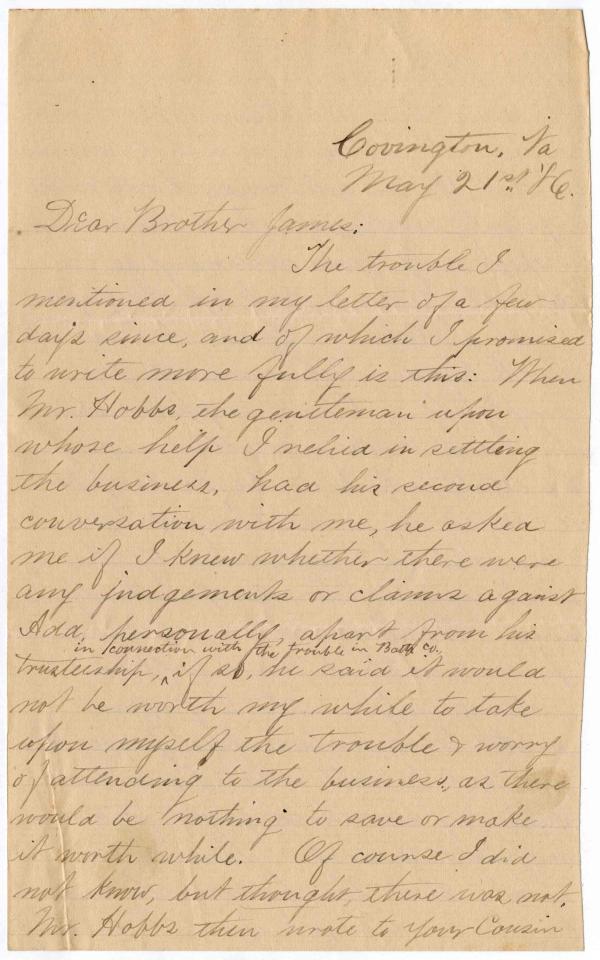 Covington, Va
May 21st, '86.
Dear Brother James:
The trouble I
mentioned in my letter of a few
days since, and of which I promised
to write more fully is this: When
Mr. Hobbs, the gentleman upon
whose help I relied in settling
the business, had his second
conversation with me, he asked
me if I knew whether there were
any judgements or claims against
Add, personally, apart from his
in connection with the trouble in Bath co.
trusteeship, ^ if so, he said it would
not be worth my while to take
upon myself the trouble & worry
of attending to the business, as there
would be nothing to save or make
it worth while. Of course I did
not know, but thought, there was not.
Mr. Hobbs then wrote to your Cousin